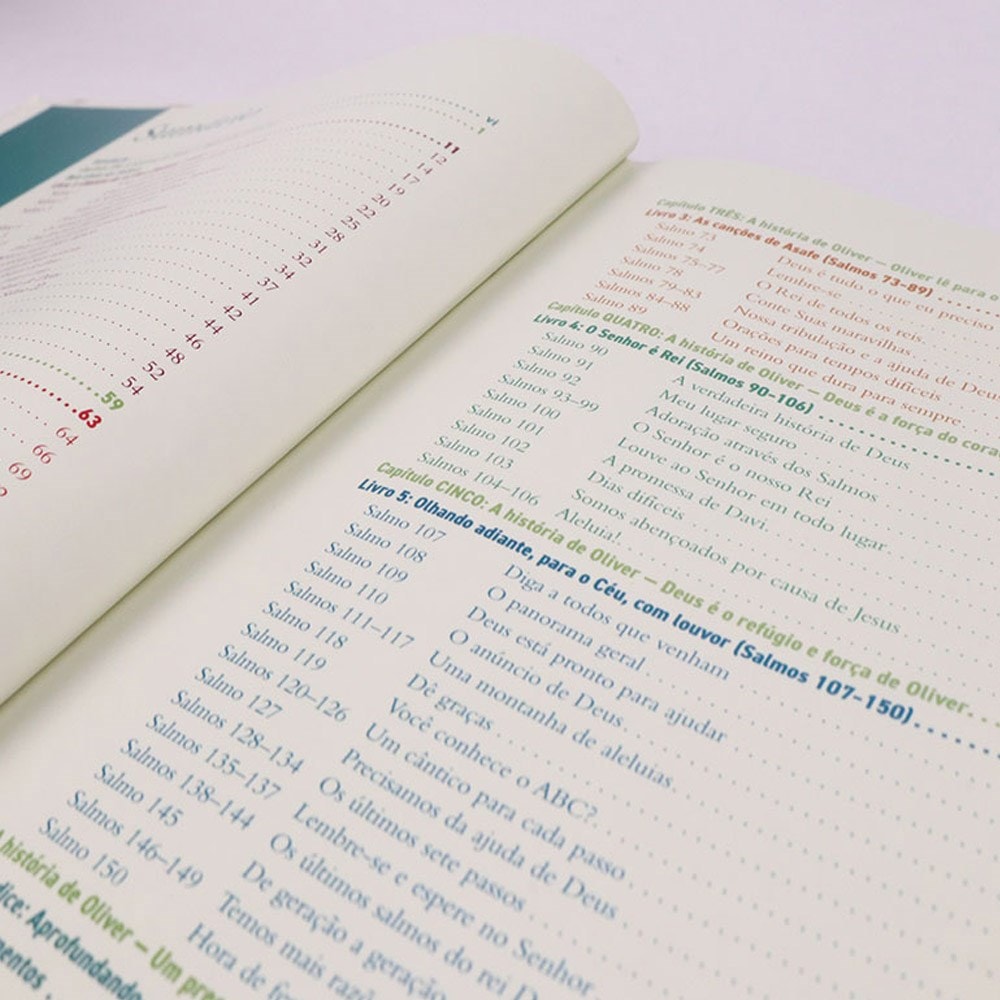 Sumário
vi
1
11
12
14
17
19
20
22
25
28
31
32
34
37
41
42
44
46
48
52
54
59
63
64
66
69
Capítulo TRÊS: A história de Oliver — Oliver lê para o
Livro 3: As canções de Asafe (Salmos 73-89)
Salmo 73 Deus é tudo o que eu preciso
Salmo 74 Lembre-se
Salmos 75–77 O Rei de todos os reis
Salmo 78 Conte Suas maravilhas
Salmos 79–83 Nossa tribulação e a ajuda de Deus
Salmos 84–88 Orações para tempos difíceis
Salmo 89 Um reino que dura para sempre
Capítulo QUATRO: A história de Oliver — Deus é a força do
Livro 4: O Senhor é Rei (Salmos 90-106)
Salmo 90 A verdadeira história de Deus
Salmo 91 Meu lugar seguro
Salmo 92 Adoração através dos Salmos
Salmos 93–99 O Senhor é o nosso Rei
Salmo 100 Louve ao Senhor em todo lugar
Salmo 101 A promessa de Davi
Salmo 102 Dias difíceis
Salmo 103 Somos abençoados por causa de Jesus
Salmos 104–106 Aleluia!
Capítulo CINCO: A história de Oliver — Deus é o refúgio e força de Oliver
Livro 5: Olhando adiante, para o Céu, com louvor (Salmos 107-150)
Salmo 107 Diga a todos que venham
Salmo 108 O panorama geral
Salmo 109 Deus está pronto para ajudar
Salmo 110 O anúncio de Deus
Salmos 111–117 Uma montanha de aleluias
Salmo 118 Dê graças
Salmo 119 Você conhece o ABC?
Salmos 120–126 Um cântico para cada passo
Salmo 127 Precisamos da ajuda de Deus
Salmos 128–134 Os últimos sete passos
Salmos 135–137 Lembre-se e espere no Senhor
Salmos 138–144 Os últimos salmos do rei
Salmo 145 De geração a geração
Salmos 146–149 Temos mais
Salmo 150 Hora de
história de Oliver — Um
Aprofundando